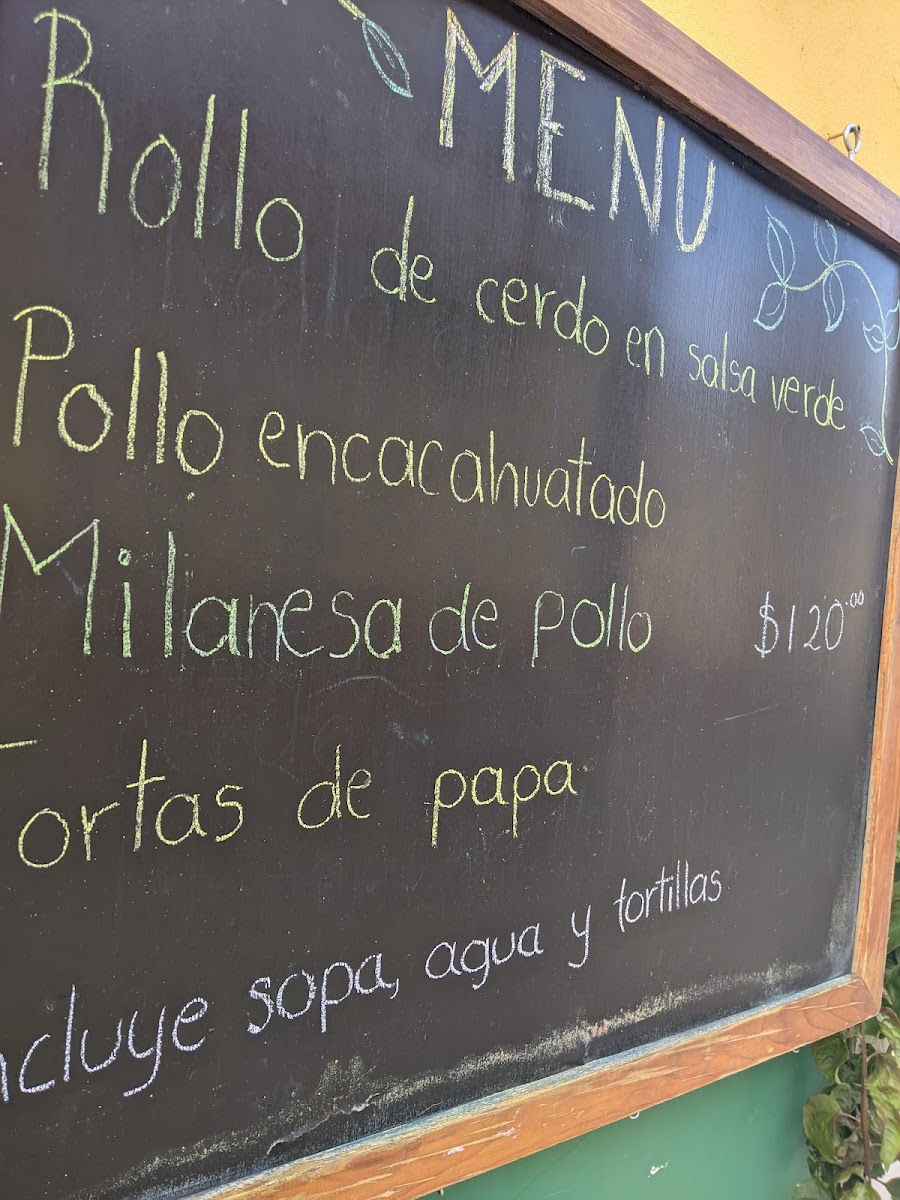 MENU
Rollo de cerdo en salsa verde
Pollo encacahuatado
Milanesa de pollo $120.00
Tortas de papa
ncluye sopa, agua y tortillas